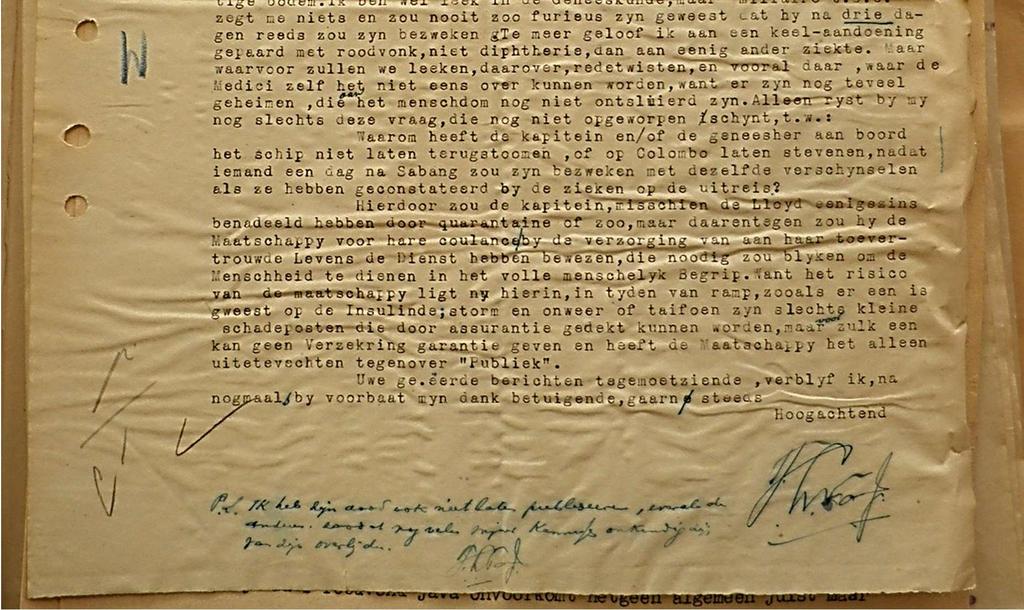 tige bodem.Ik ben wel leek in de Geneeskunde,maar
zegt me niets en zou nooit zoo furieus zyn geweest dat hy na drie da-
gen reeds zou zyn bezweken gTe meer geloof ik aan een keel-aandoening
gepaard met roodvonk,niet diphtherie,dan aan eenig ander ziekte. Maar
waarvoor zullen we leeken,daarover,redetwisten,en vooral daar ,waar de
Medici zelf het niet eens over kunnen worden,want er zyn nog teveel
geheimen ,die aan het menschdom nog niet ontsluierd zyn.Alleen ryst by my
nog slechts deze vraag,die nog niet opgeworpen schynt,t.w.:
Waarom heeft de kapitein en/of de geneesher aan boord
het schip niet laten terugstoomen ,of op Colombo laten stevenen,nadat
iemand een dag na Sabang zou zyn bezweken met dezelfde verschynselen
als ze hebben geconstateerd by de zieken op de uitreis?
Hierdoor zou de kapitein,misschien de Lloyd eenigszins
benadeeld hebben door quarantaine of zoo,maar daarentegen zou hy de
Maatschappy voor hare coulance by de verzorging van aan haar toever-
trouwde Levens de Dienst hebben bewezen,die noodig zou blyken om de
Menschheid te dienen in het volle menschelyk Begrip.Want het risico
van de maatschappy ligt ny hierin,in tyden van ramp,zooals er een is
gweest op de Insulinde;storm en onweer of taifoen zyn slechts kleine
schadeposten die door assurantie gedekt kunnen worden,maar voor zulk een
kan geen Verzekring garantie geven en heeft de Maatschappy het alleen
uitetevechten tegenover "Publiek".
Uwe ge.eerde berichten tegemoetziende ,verblyf ik,na
nogmaals by voorbaat myn dank betuigende,gaarn steeds
Hoogachtend
P.S. Ik heb zijn dood ook niet laten publiceeren,
van zijn overlijden.
Java onvoorkomt hetgeen algemeen juist maar